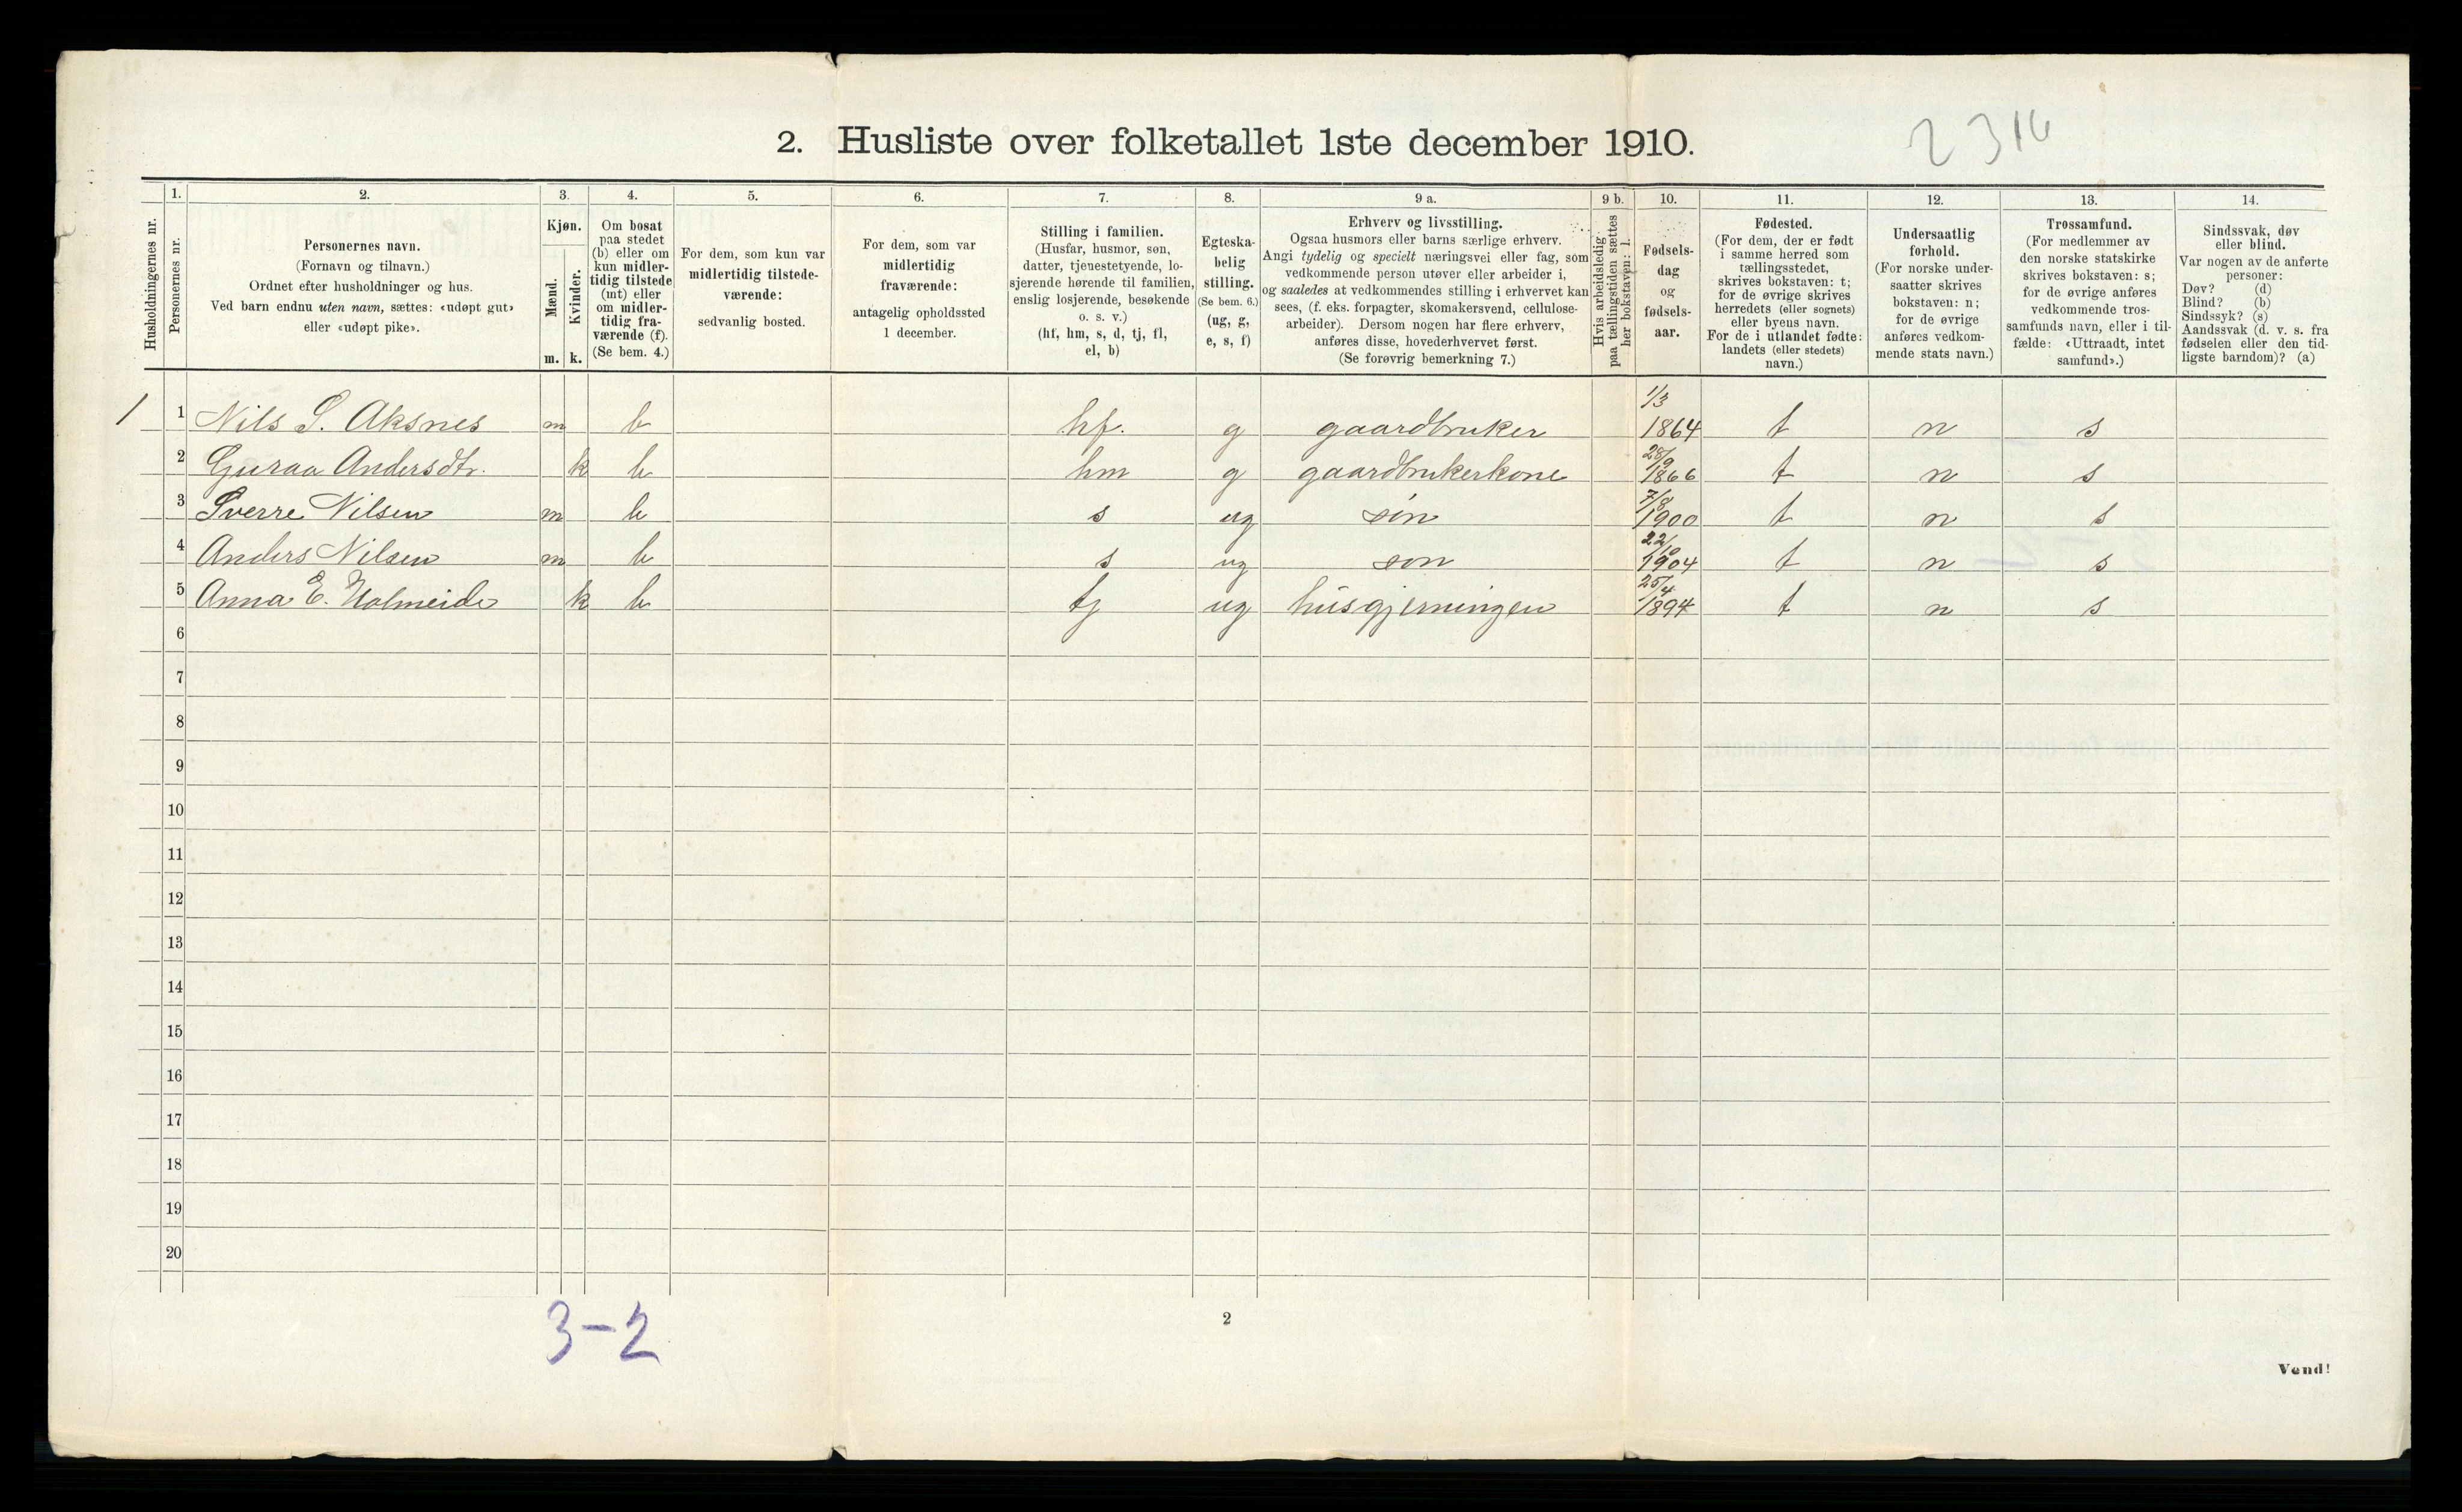 2. Husliste over folketallet 1ste december 1910.
2316
1. 2. 3. 4. 5. 6. 7. 8. 9 a. 9 b. 10. 11. 12. 13. 14.
Husholdningernes nr.
Personernes nr.
Personernes navn.
(Fornavn og tilnavn.)
Ordnet efter husholdninger og hus.
Ved barn endnu uten navn, sættes: «udøpt gut»
eller «udøpt pike».
Kjøn.
Mænd.
Kvinder.
m. k.
Om bosat
paa stedet
(b) eller om
kun midler-
tidig tilstede
(mt) eller
om midler-
tidig fra-
værende (f).
(Se bem. 4.)
For dem, som kun var
midlertidig tilstede-
værende:
sedvanlig bosted.
For dem, som var
midlertidig
fraværende:
antagelig opholdssted
1 december.
Stilling i familien.
(Husfar, husmor, søn,
datter, tjenestetyende, lo-
sjerende hørende til familien,
enslig losjerende, besøkende
o. s. v.)
(hf, hm, s, d, tj, fl,
el, b)
Egteska-
belig
stilling.
(Se bem. 6.)
(ug, g,
e, s, f)
Erhverv og livsstilling.
Ogsaa husmors eller barns særlige erhverv.
Angi tydelig og specielt næringsvei eller fag, som
vedkommende person utøver eller arbeider i,
og saaledes at vedkommendes stilling i erhvervet kan
sees, (f. eks. forpagter, skomakersvend, cellulose-
arbeider). Dersom nogen har flere erhverv,
anføres disse, hovederhvervet først.
(Se forøvrig bemerkning 7.)
Hvis arbeidsledig
paa tællingstiden sættes
her bokstaven: l.
Fødsels-
dag
og
fødsels-
aar.
Fødested.
(For dem, der er født
i samme herred som
tællingsstedet,
skrives bokstaven: t;
for de øvrige skrives
herredets (eller sognets)
eller byens navn.
For de i utlandet fødte:
landets (eller stedets)
navn.)
Undersaatlig
forhold.
(For norske under-
saatter skrives
bokstaven: n;
for de øvrige
anføres vedkom-
mende stats navn.)
Trossamfund.
(For medlemmer av
den norske statskirke
skrives bokstaven: s;
for de øvrige anføres
vedkommende tros-
samfunds navn, eller i til-
fælde: «Uttraadt, intet
samfund».)
Sindssvak, døv
eller blind.
Var nogen av de anførte
personer:
Døv? (d)
Blind? (b)
Sindssyk? (s)
Aandssvak (d. v. s. fra
fødselen eller den tid-
ligste barndom)? (a)
1 1 Nils S. Aksnes m b hf. g gaardbruker 1/3 1864 t n s
2 Guraa Andersdtr. k b hm g gaardbrukerkone 28/9 1866 t n s
3 Sverre Nilsen m b s ug søn 7/8 1900 t n s
4 Anders Nilsen m b s ug søn 22/10 1904 t n s
5 Anna E. Holmeide k b tj ug husgjerningen 25/4 1894 t n s
6
7
8
9
10
11
12
13
14
15
16
17
18
19
20
3-2
2
Vend!